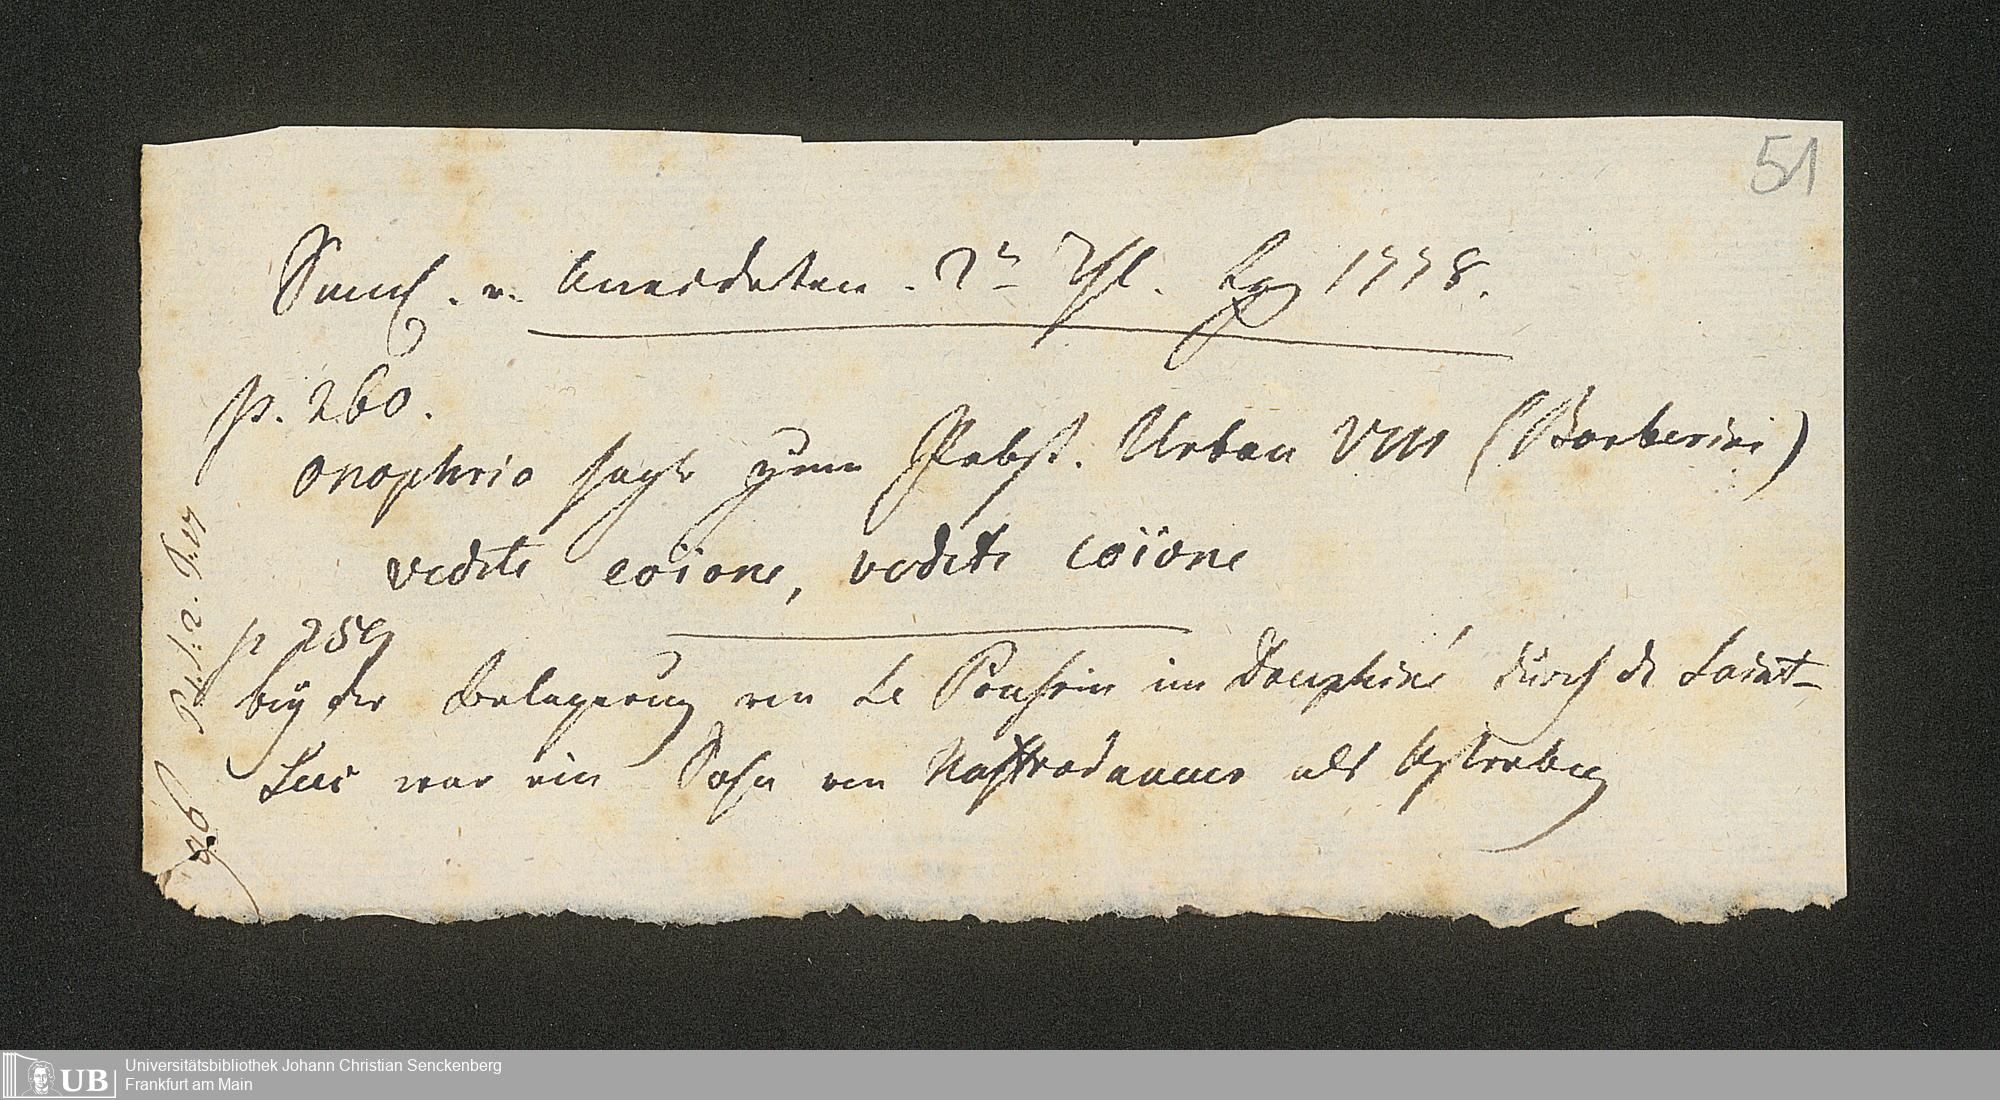 51
Samml. v. Anecdoten. 2r Thl. Lpz 1778.
p. 260.
Onophrio sagte zum Pabst. Urban VIII (Barberini)
vedete coione, vedete coïone
p 259
bey der Belagerung von Le Pousin im Dauphiné durch de Saint-
Luc war ein Sohn von Nostradamus als Astrolog
Universitätsbibliothek Johann Christian Senckenberg
UB
Frankfurt am Main